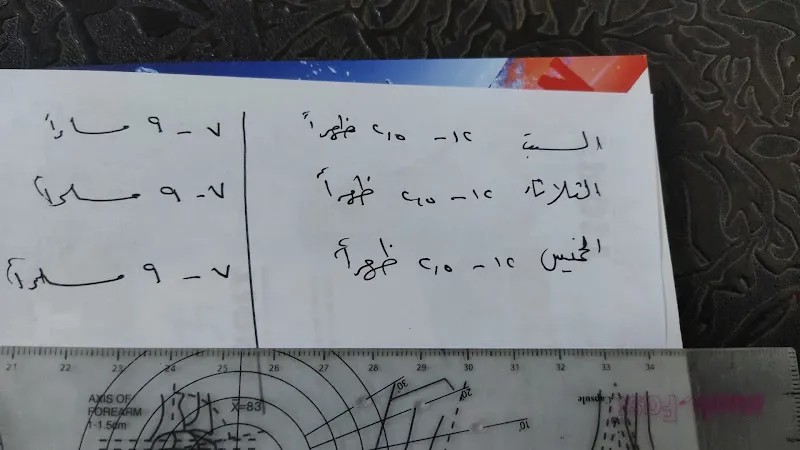 السبت ١٢ - ٢,١٥ ظهراً ٧ - ٩ مساءاً
الثلاثاء ١٢ - ٢,١٥ ظهراً ٧ - ٩ مساءاً
الخميس ١٢ - ٢,١٥ ظهراً ٧ - ٩ مساءاً
21 22 23 24 25 26 27 28 29 30 31 32 33 34
AXIS OF
FOREARM
1-1.5cm
X=83
30°
20°
10°